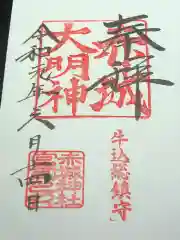 奉拝
赤城
牛込総鎮守
大明神
赤城神社
令和元年月日